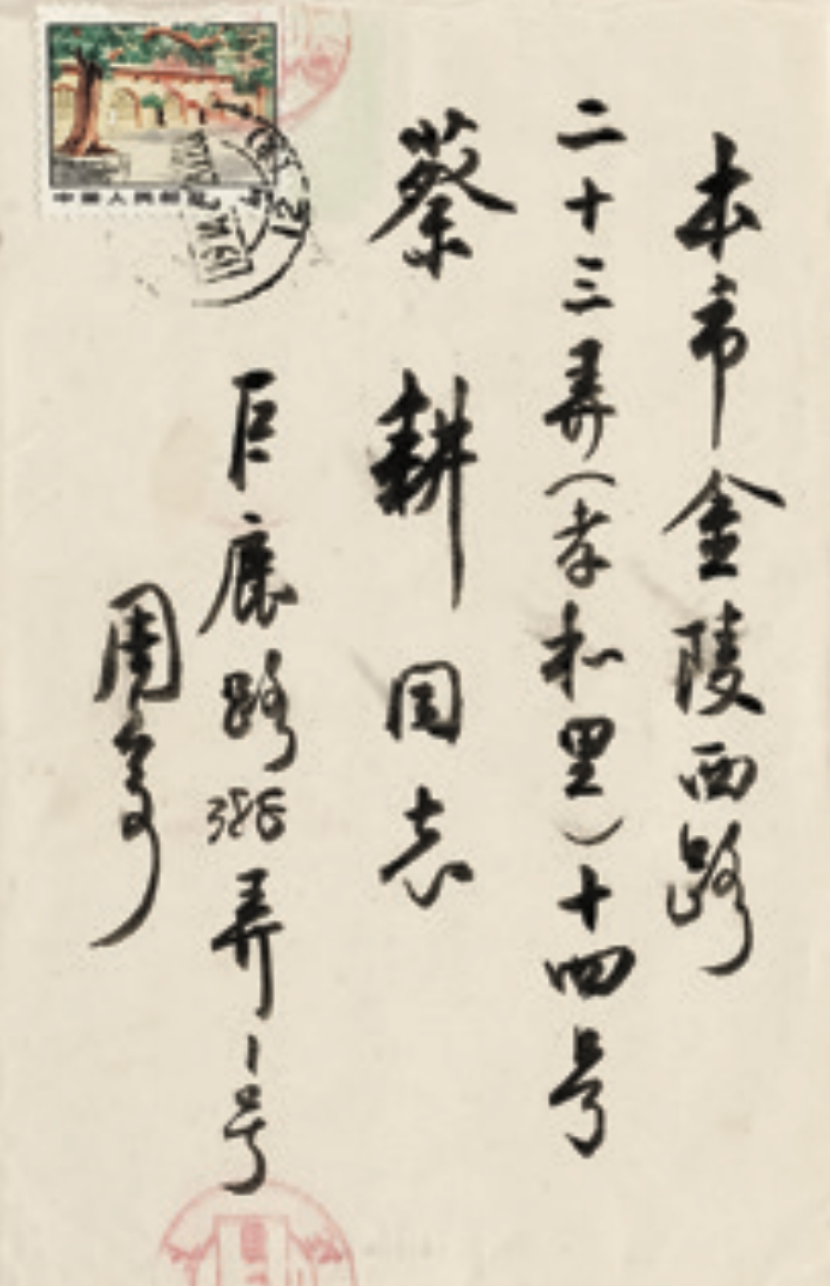 本市金陵西路
二十三弄(孝和里)十四号
蔡耕同志
巨鹿路383弄1号
周
中国人民邮政
12